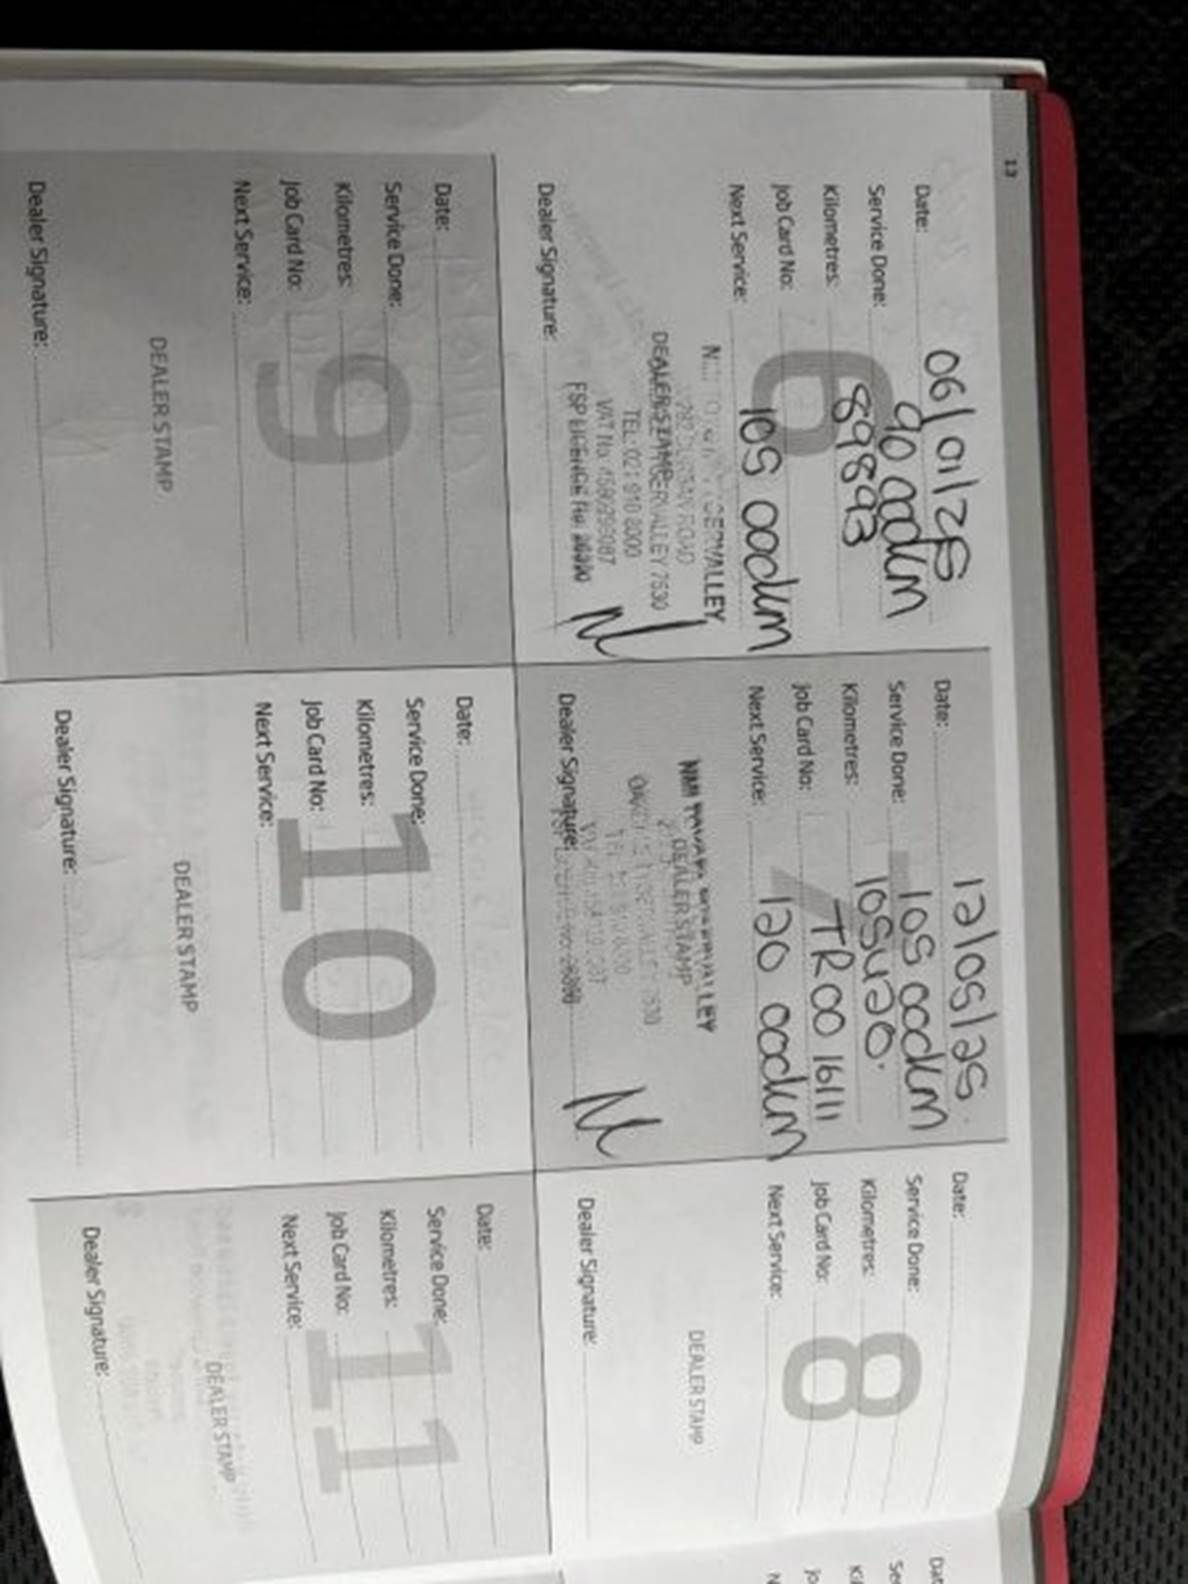 13
Date: 06/01/25
Service Done: 90 000km
Kilometres: 89893
Job Card No:
Next Service: 105 000km
6
DEALER STAMP
TEL: 021 910 8000
Dealer Signature:
Date: 12/05/25
Service Done: 105 000km
Kilometres:
Job Card No: TR00 16111
Next Service: 120 000km
7
NMI
DEALER STAMP
Dealer Signature:
Date:
Service Done:
Kilometres:
Job Card No:
Next Service:
8
DEALER STAMP
Dealer Signature:
Date:
Service Done:
Kilometres:
Job Card No:
Next Service:
9
DEALER STAMP
Dealer Signature:
Date:
Service Done:
Kilometres:
Job Card No:
Next Service:
10
DEALER STAMP
Dealer Signature:
Date:
Service Done:
Kilometres:
Job Card No:
Next Service:
11
DEALER STAMP
Dealer Signature: